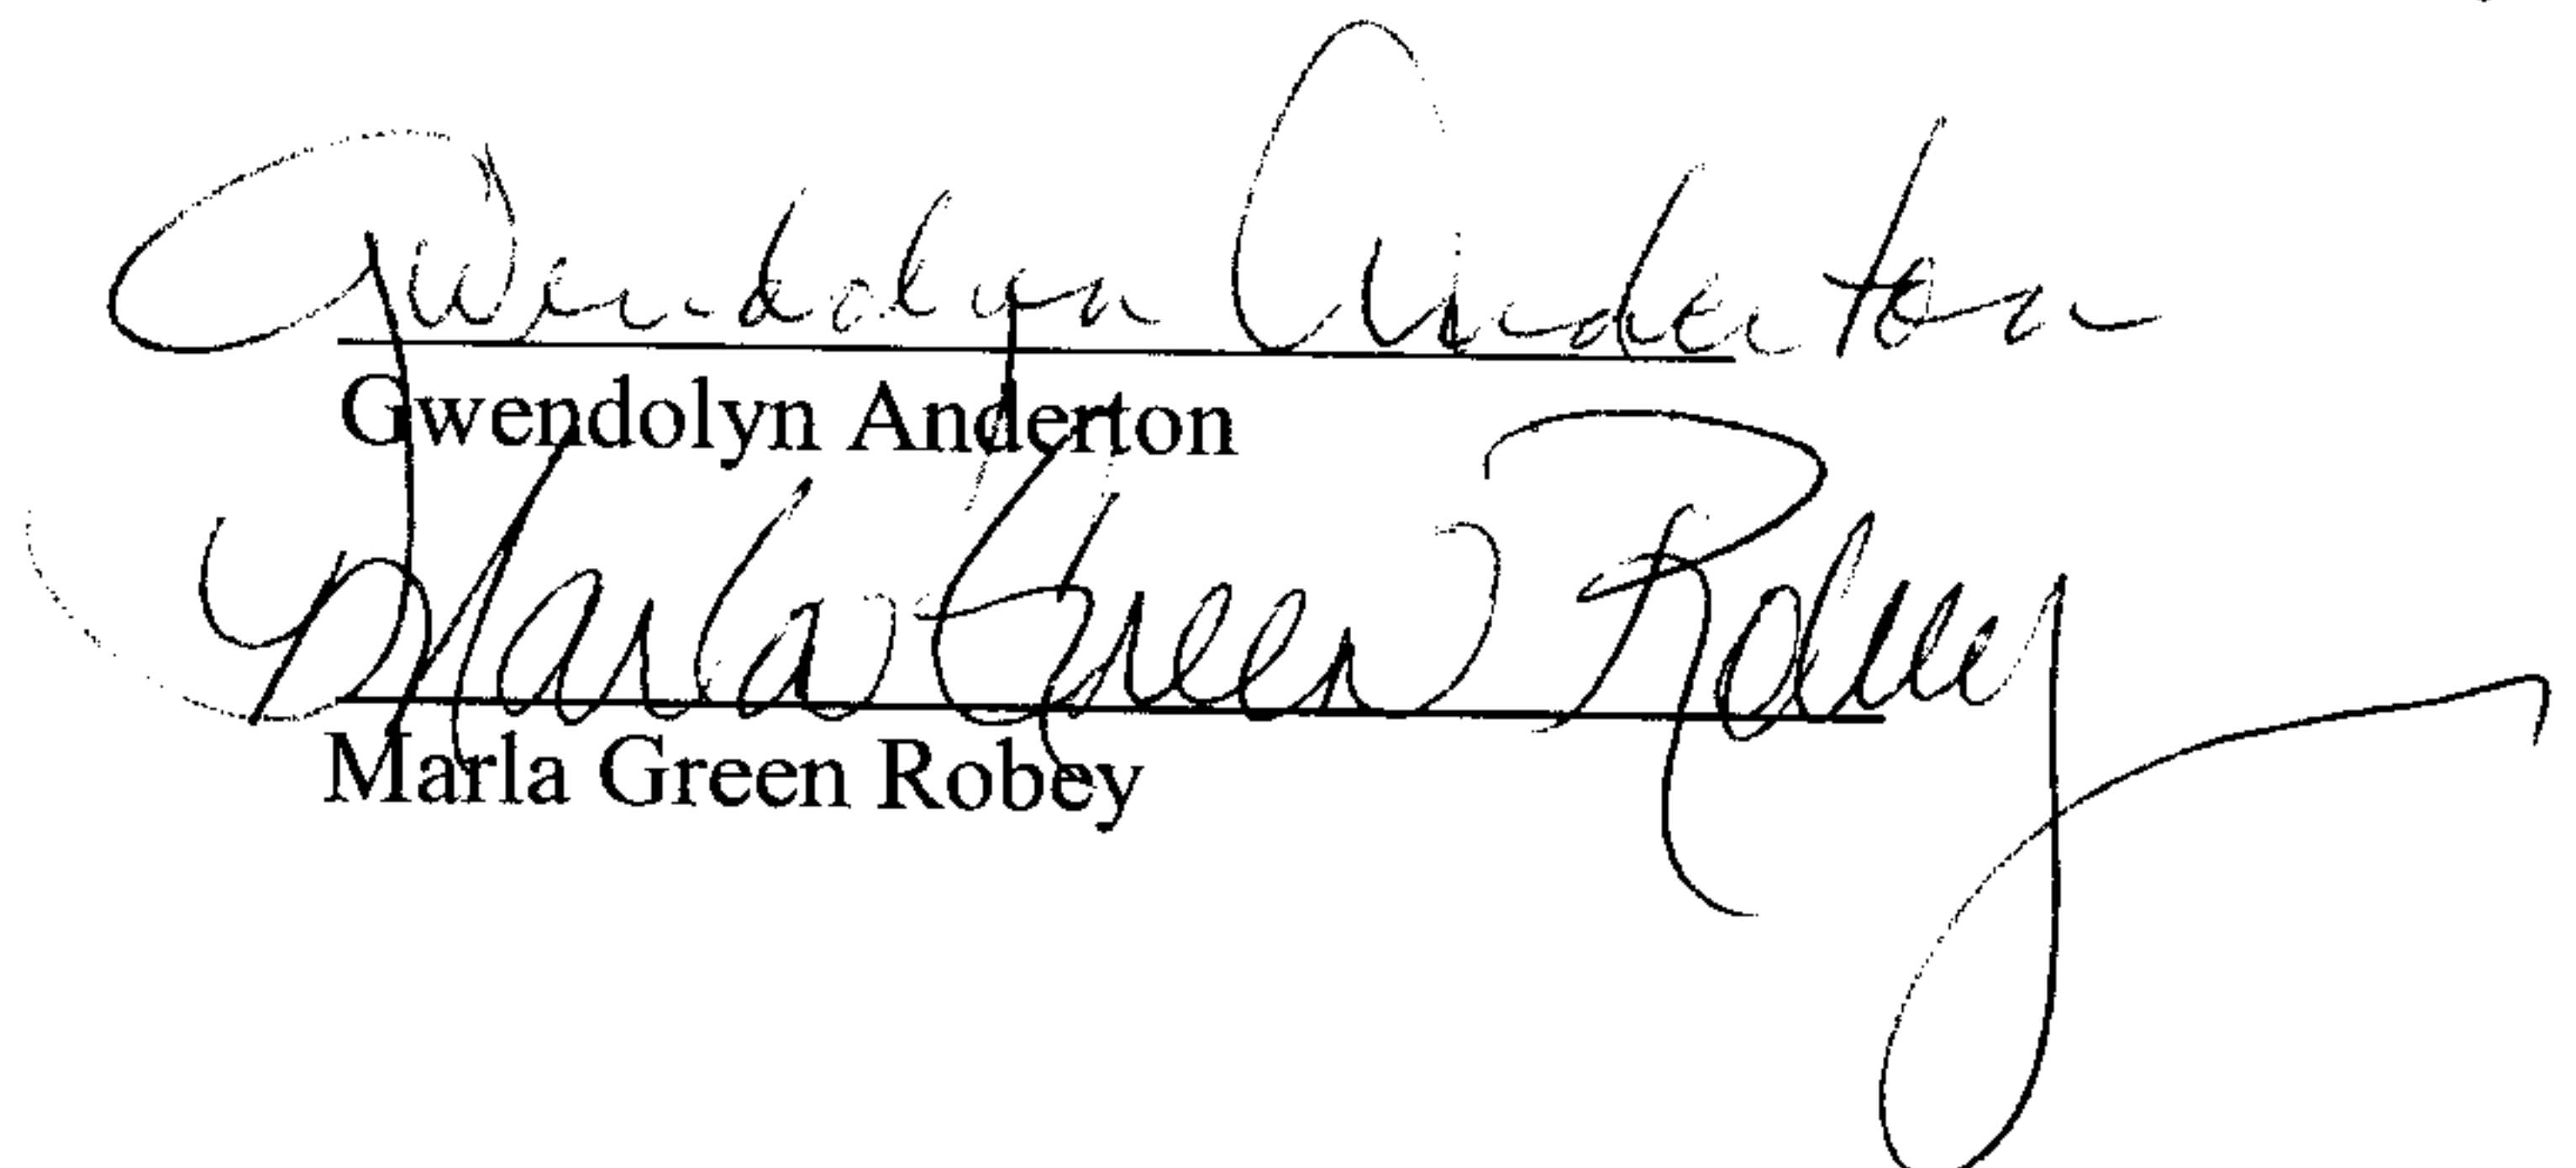 Gwendolyn Anderton
Gwendolyn Anderton
Marla Green Robey
Marla Green Robey